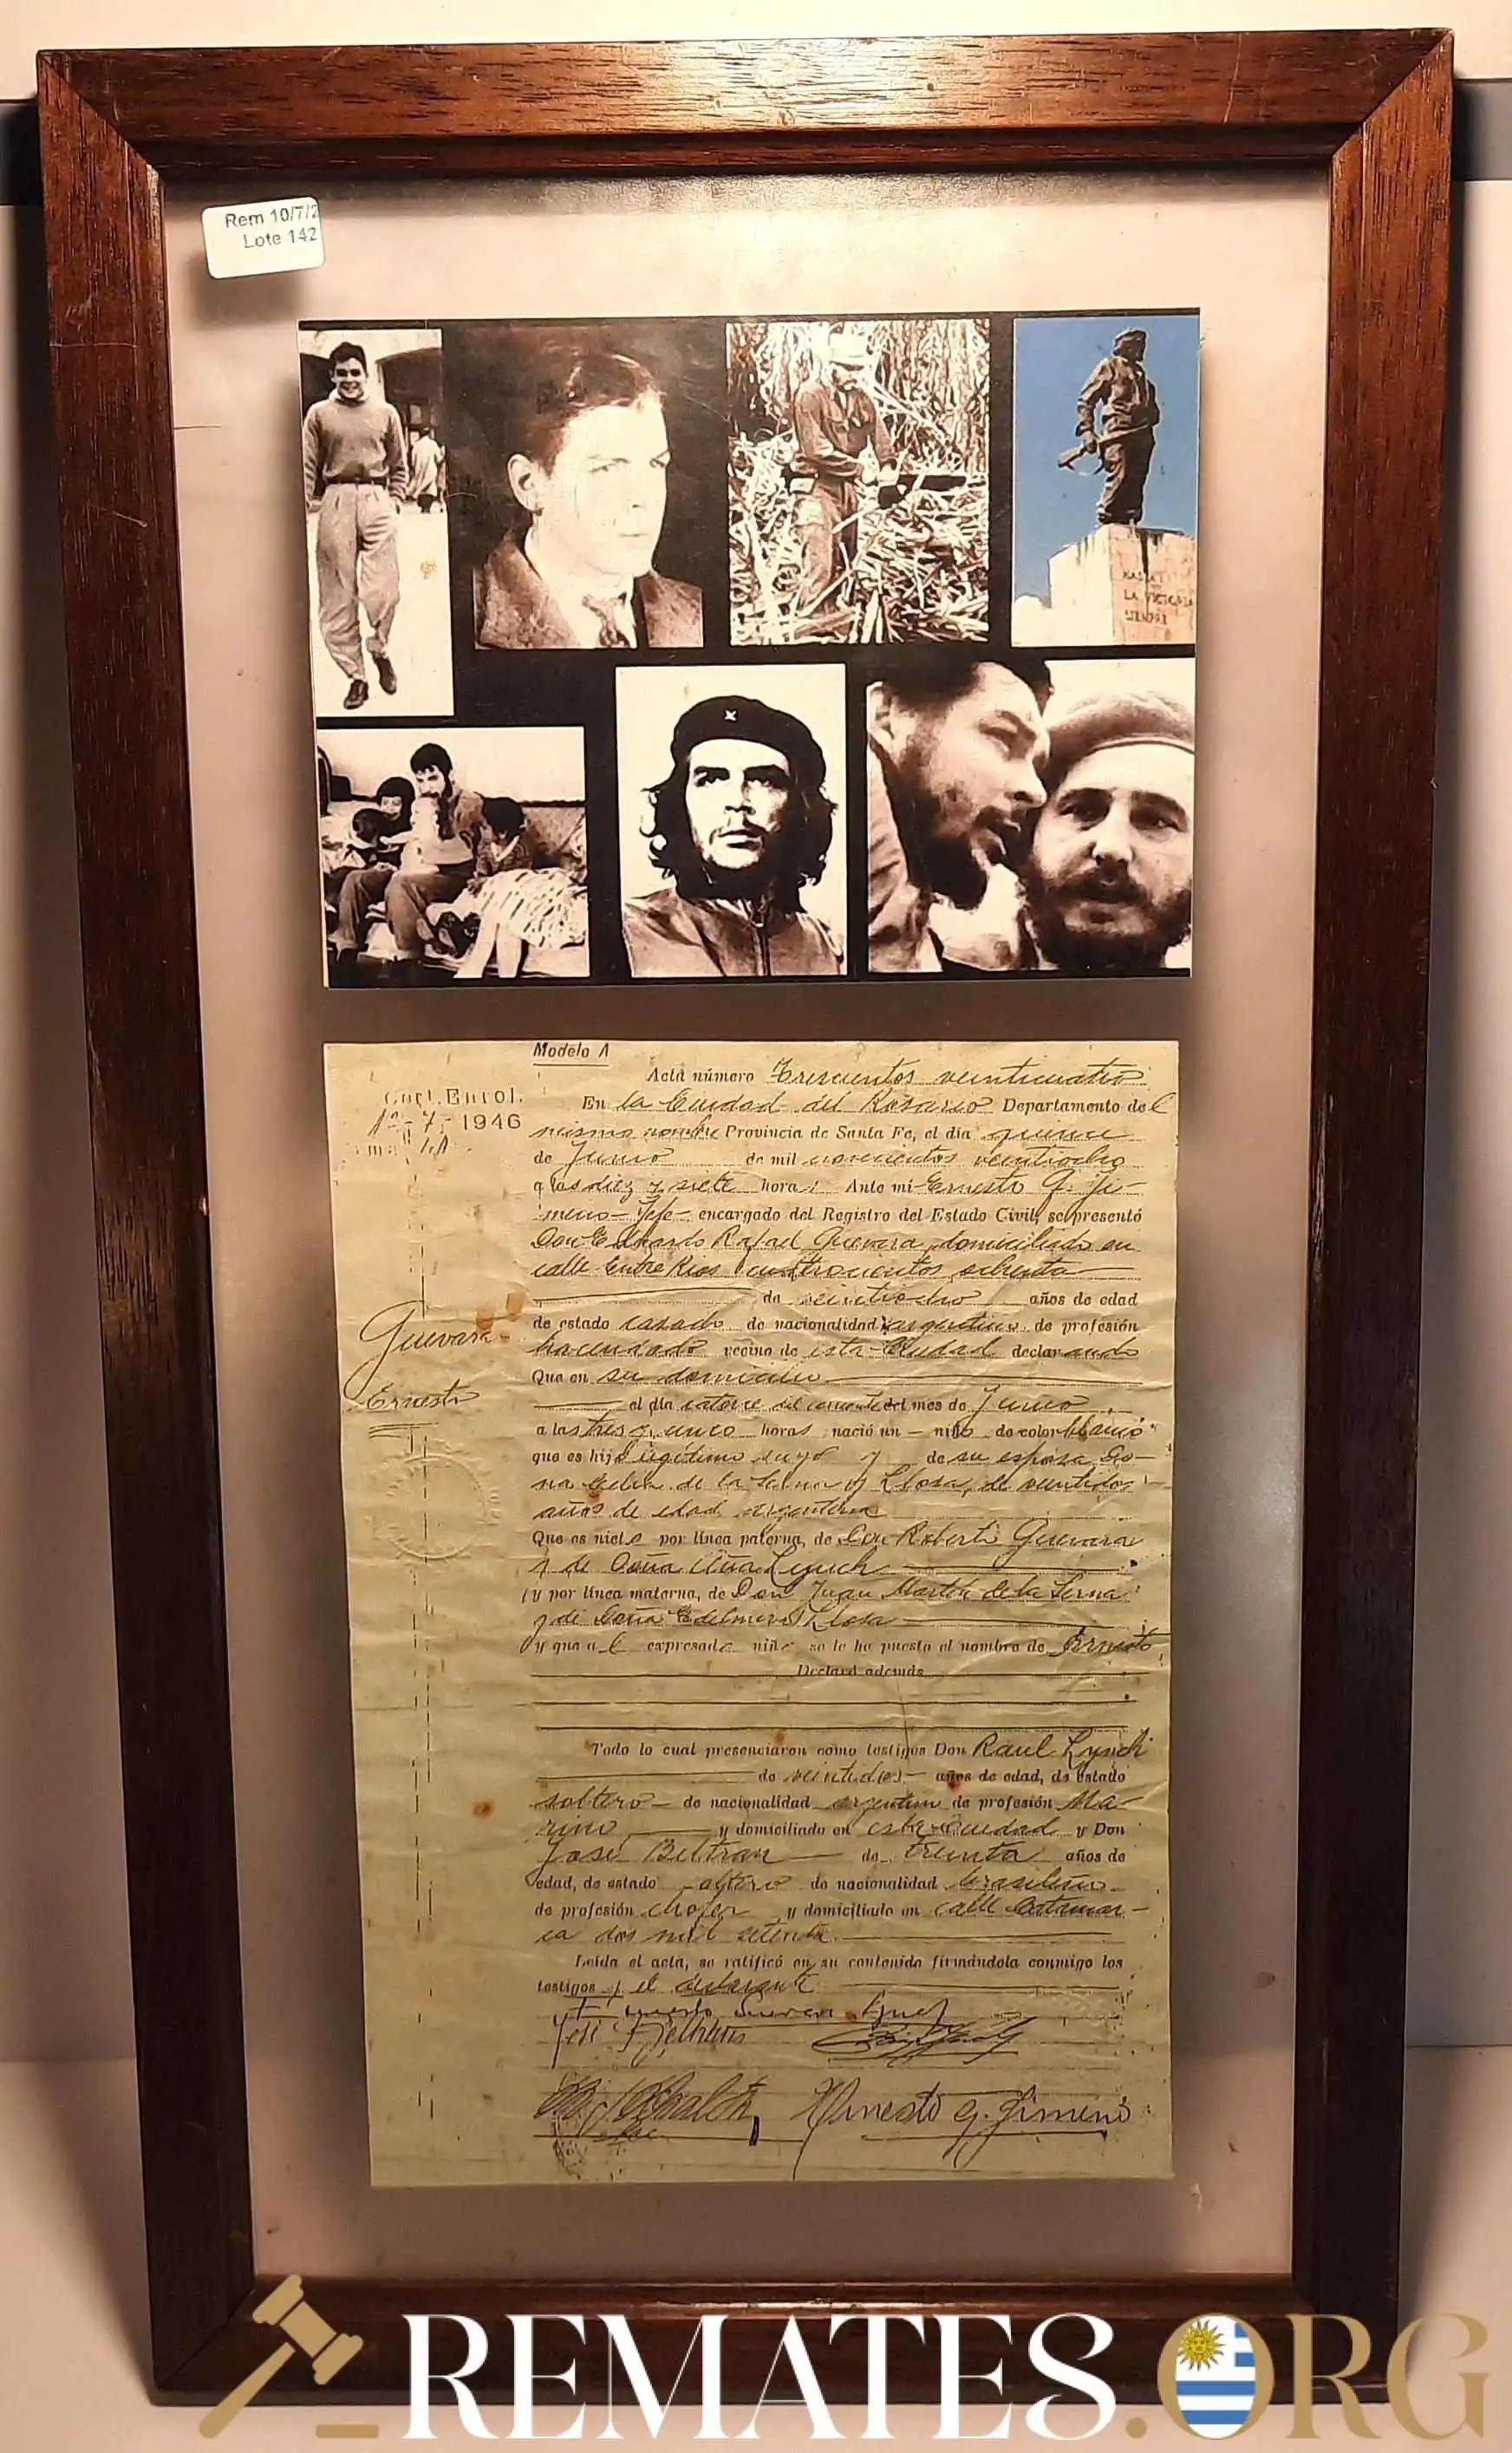 Rem 10/7/2
Lote 142
HASTA
LA VICTORIA
SIEMPRE
Modelo A
Acta número Trescientos veinticuatro
Enrol.
En la Ciudad del Rosario Departamento del
7 - 1946
mismo nombre Provincia de Santa Fe, el día quince
de Junio de mil novecientos veintiocho
a las diez y siete horas Ante mi Ernesto G. Ji-
meno - Jefe - encargado del Registro del Estado Civil, se presentó
Don Eduardo Rafael Guevara, domiciliado en
calle Entre Rios cuatrocientos ochenta
de veintiocho años de edad
de estado casado de nacionalidad argentino de profesión
Guevara
hacendado vecino de esta Ciudad declarando
Que en su domicilio
Ernesto
el día catorce del corriente del mes de Junio
a las tres y cinco horas nació un niño de color blanco
que es hijo legítimo suyo y de su esposa Do-
na Celia de la Serna y Llosa, de veintidos
años de edad argentina
Que es nieto por línea paterna, de Don Roberto Guevara
y de Doña Ana Lynch
y por línea materna, de Don Juan Martín de la Serna
y de Doña Edelmira Llosa
y que a l expresado niño se le ha puesto el nombre de Ernesto
Declaró además
Todo lo cual presenciaron como testigos Don Raul Lynch
de veintidos años de edad, de estado
soltero de nacionalidad argentino de profesión Ma-
rino y domiciliado en esta Ciudad y Don
José Beltran de treinta años de
edad, de estado soltero de nacionalidad brasileño
de profesión chofer y domiciliado en calle Catamar-
ca dos mil setenta
Leída el acta, se ratificó en su contenido firmándola conmigo los
testigos y el declarante
Ernesto Guevara Lynch
José Beltran
Ernesto G. Jimeno
REMATES.ORG